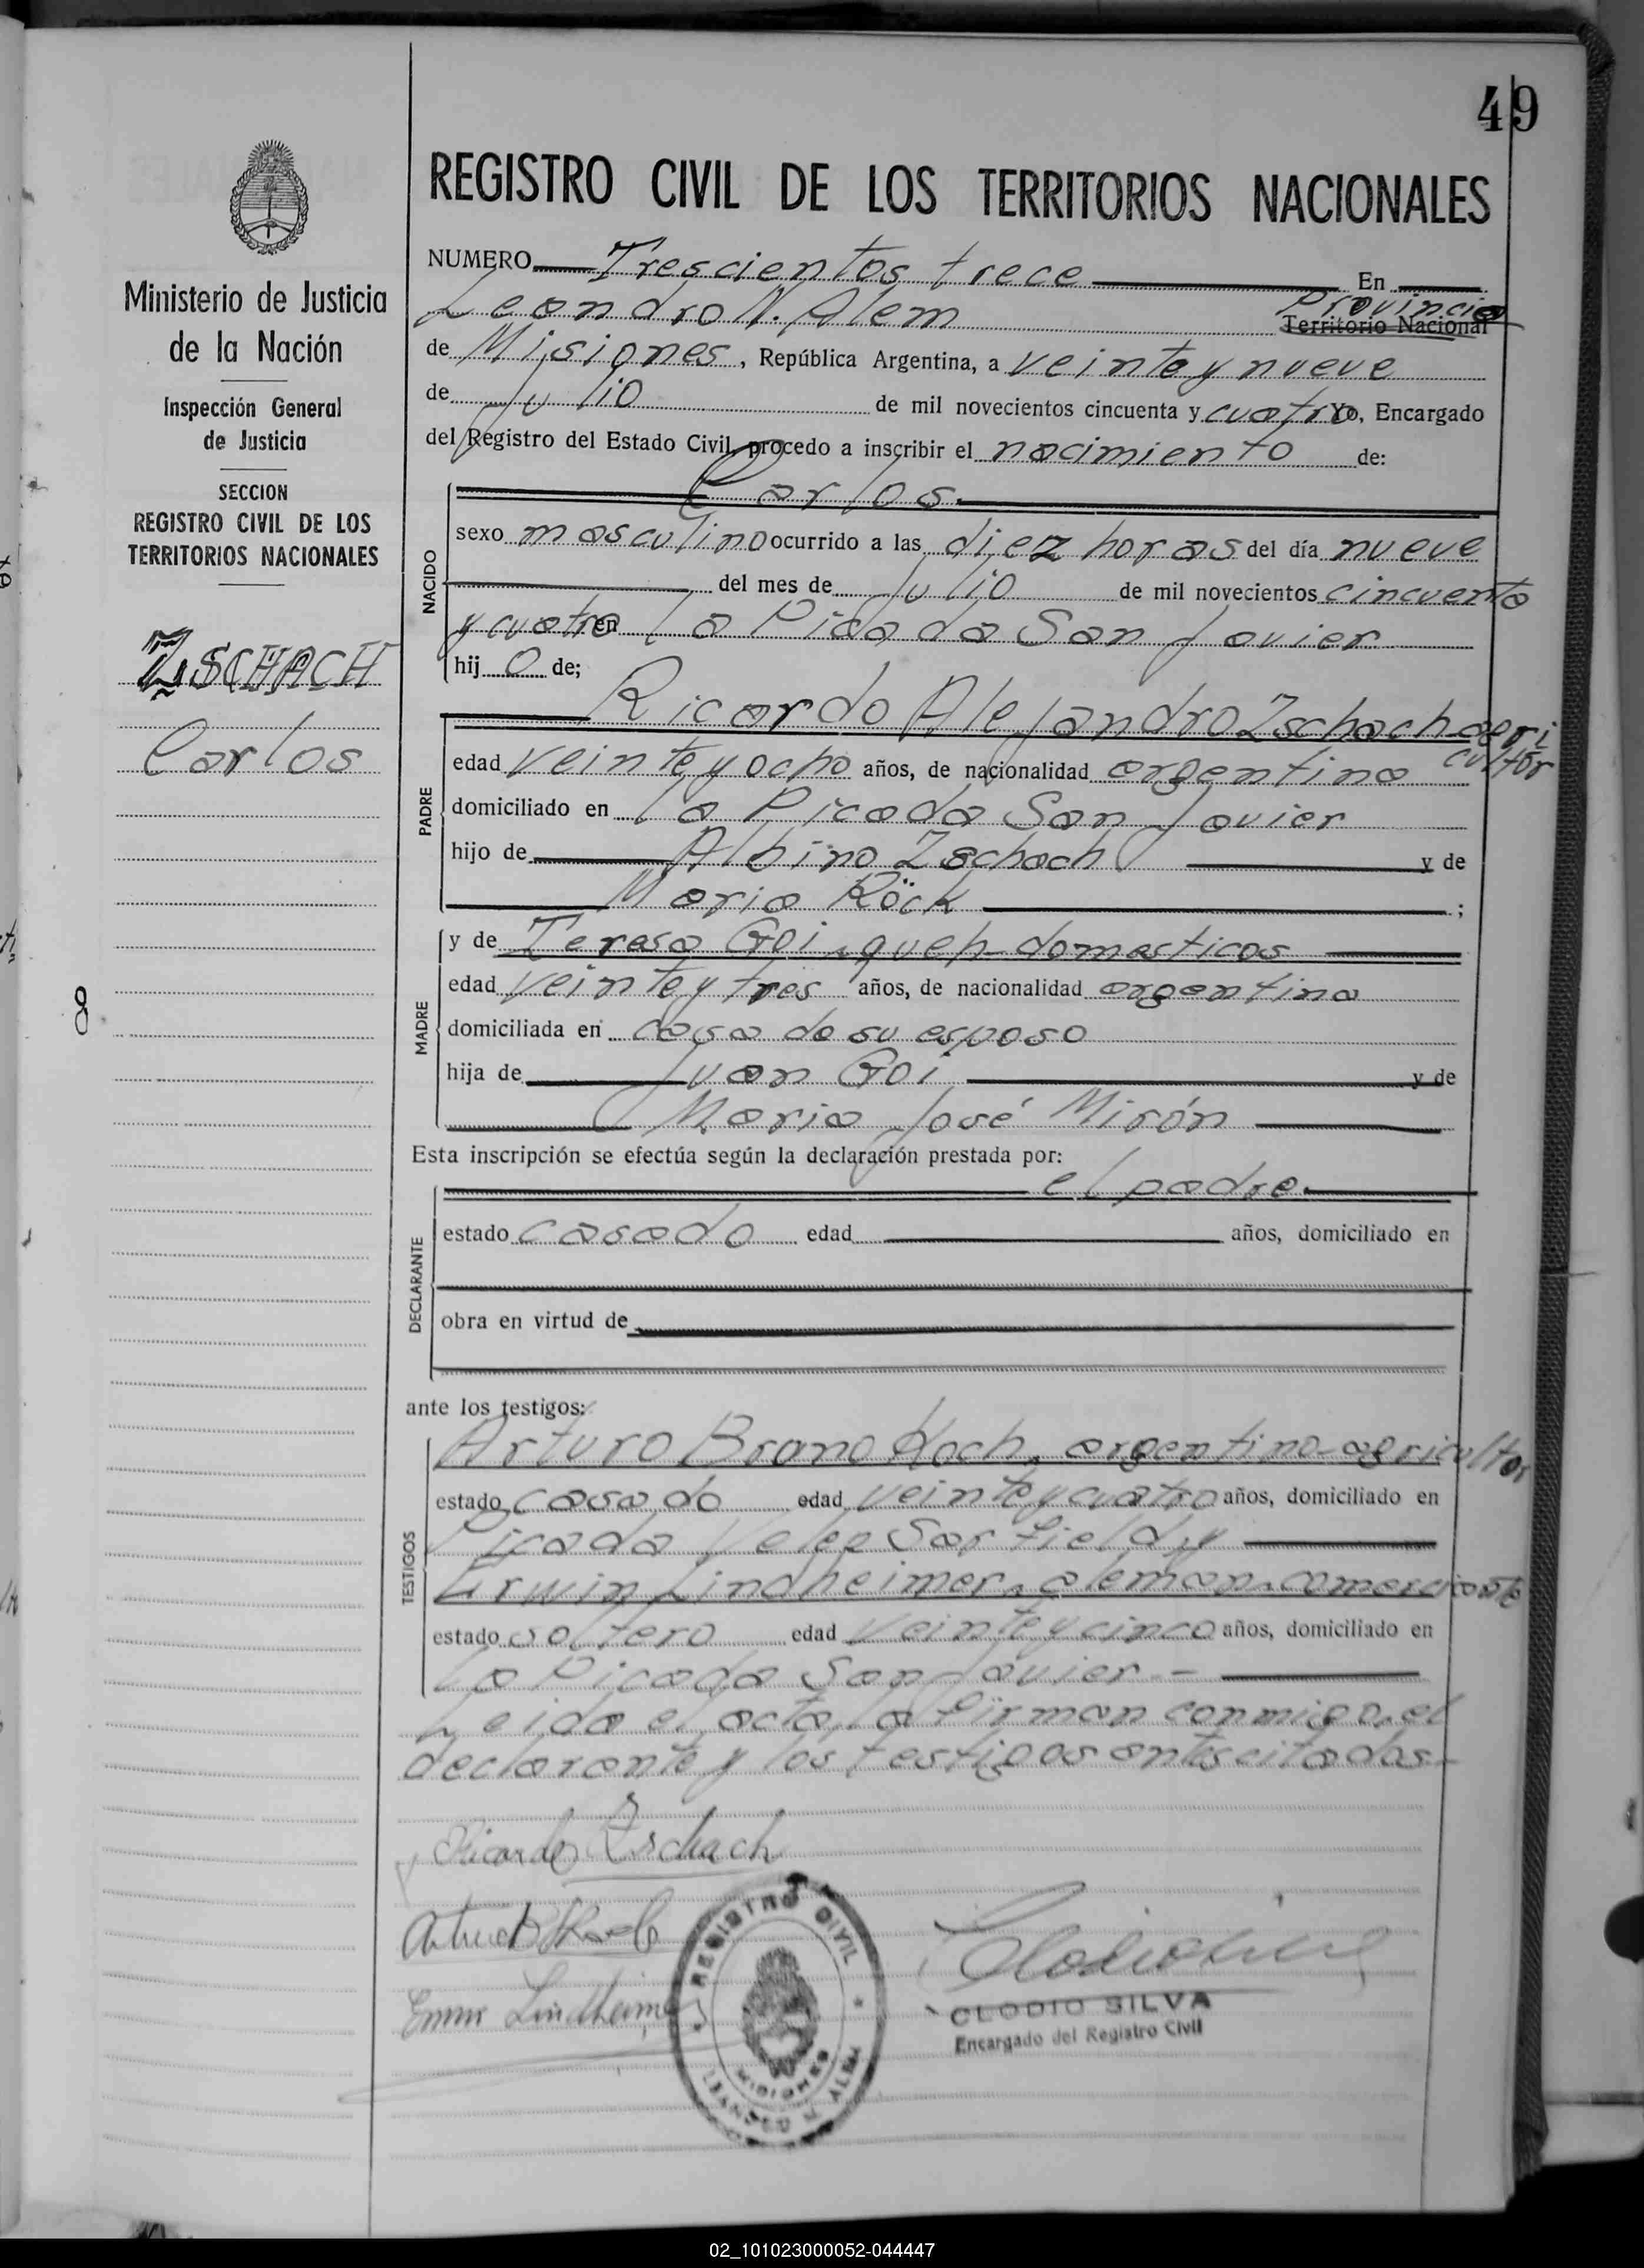 49
REGISTRO CIVIL DE LOS TERRITORIOS NACIONALES
Ministerio de Justicia
de la Nación
Inspección General
de Justicia
SECCION
REGISTRO CIVIL DE LOS
TERRITORIOS NACIONALES
ZSCHACH
Carlos
8
NUMERO Trescientos trece En
Leandro N. Alem Provincia
Territorio Nacional
de Misiones, República Argentina, a veinte y nueve
de Julio de mil novecientos cincuenta y cuatro Yo, Encargado
del Registro del Estado Civil, procedo a inscribir el nacimiento de:
NACIDO
Carlos.
sexo masculino ocurrido a las diez horas del día nueve
del mes de Julio de mil novecientos cincuenta
y cuatro en la Picada San Javier
hijo de;
PADRE
Ricardo Alejandro Zschach agri
cultor
edad veinte y ocho años, de nacionalidad argentina
domiciliado en la Picada San Javier
hijo de Albino Zschach y de
Maria Röck ;
MADRE
y de Teresa Goi, queh-domesticos
edad veinte y tres años, de nacionalidad argentina
domiciliada en casa de su esposo
hija de Juan Goi y de
Maria José Mirón
Esta inscripción se efectúa según la declaración prestada por:
DECLARANTE
el padre.
estado casado edad años, domiciliado en
obra en virtud de
ante los testigos:
TESTIGOS
Arturo Bruno Koch, argentino-agricultor
estado casado edad veinte y cuatro años, domiciliado en
Picada Velep Sarfield, y
Erwin Lindheimer, aleman, comerciante
estado soltero edad veinte y cinco años, domiciliado en
la Picada San Javier -
Leida el acta, la firman conmigo, el
declarante y los testigos antes citados-
Ricardo Zschach
Arturo B Koch
Erwin Lindheimer
REGISTRO CIVIL
MISIONES
LEANDRO N. ALEM
CLODIO SILVA
Encargado del Registro Civil
02_101023000052-044447